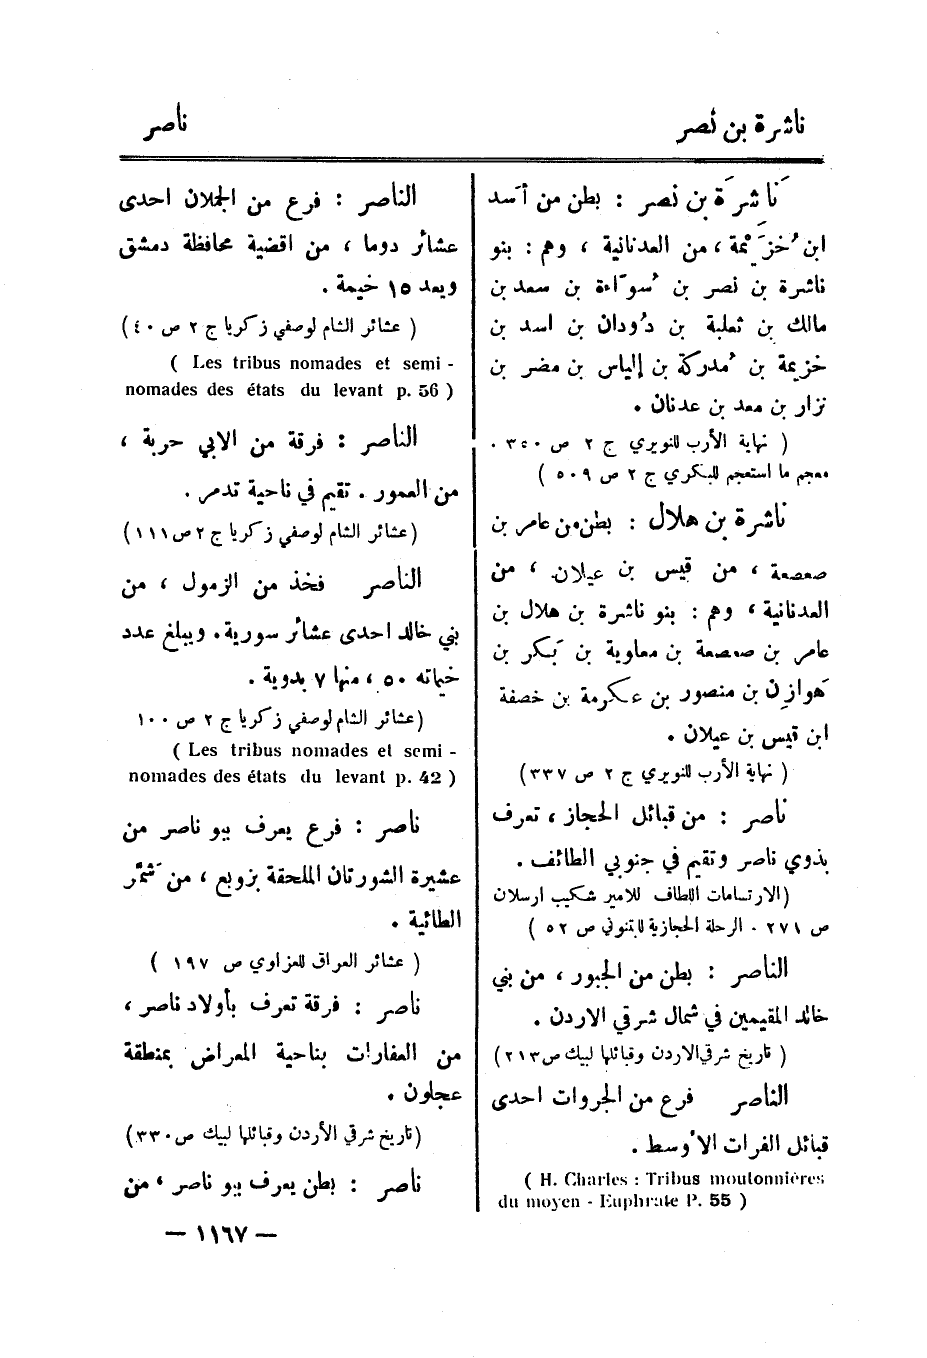 ناشرة بن نصر
ناصر
نَاشرَة بن نصر : بطن من أَسد
ابن خُزَيْمَة ، من العدنانية ، وهم : بنو
ناشرة بن نصر بن سُوَاءة بن سعد بن
مالك بن ثعلبة بن دُودان بن اسد بن
خزيمة بن مُدركة بن إلياس بن مضر بن
نزار بن معد بن عدنان .
( نهاية الأرب للنويري ج ٢ ص ٣٤٠ .
معجم ما استعجم للبكري ج ٢ ص ٥٠٩ )
ناشرة بن هلال : بطن من عامر بن
صعصعة ، من قيس بن عيلان ، من
العدنانية ، وهم : بنو ناشرة بن هلال بن
عامر بن صعصعة بن معاوية بن بَكر بن
هَوازِن بن منصور بن عكرمة بن خصفة
ابن قيس بن عيلان .
( نهاية الأرب للنويري ج ٢ ص ٣٣٧ )
ناصر : من قبائل الحجاز ، تعرف
بذوي ناصر وتقيم في جنوبي الطائف .
(الارتسامات اللطاف للامير شكيب ارسلان
ص ٢٧١ . الرحلة الحجازية للبتنوني ص ٥٢ )
الناصر : بطن من الجبور ، من بني
خالد المقيمين في شمال شرقي الاردن .
( تاريخ شرقي الاردن وقبائلها لبيك ص ٢١٣)
الناصر فرع من الجروات احدى
قبائل الفرات الأوسط .
( H. Charles : Tribus moutonnières
du moyen - Euphrate P. 55 )
الناصر : فرع من الجملان احدى
عشائر دوما ، من اقضية محافظة دمشق
ويعد ١٥ خيمة .
( عشائر الشام لوصفي زكريا ج ٢ ص ٤٠)
( Les tribus nomades et semi -
nomades des états du levant p. 56 )
الناصر : فرقة من الابي حربة ،
من العمور . تقيم في ناحية تدمر .
(عشائر الشام لوصفي زكريا ج ٢ ص ١١١)
الناصر فخذ من الزمول ، من
بني خالد احدى عشائر سورية . ويبلغ عدد
خيماته ٥٠ ، منها ٧ بدوية .
(عشائر الشام لوصفي زكريا ج ٢ ص ١٠٠
( Les tribus nomades et semi -
nomades des états du levant p. 42 )
ناصر : فرع يعرف ببو ناصر من
عشيرة الشورتان الملحقة بزوبع ، من شَمَّر
الطائية .
( عشائر العراق للعزاوي ص ١٩٧ )
ناصر : فرقة تعرف بأولاد ناصر ،
من الغفارات بناحية المعراض بمنطقة
عجلون .
(تاريخ شرقي الأردن وقبائلها لبيك ص ٣٣٠)
ناصر : بطن يعرف ببو ناصر ، من
— ١١٦٧ —